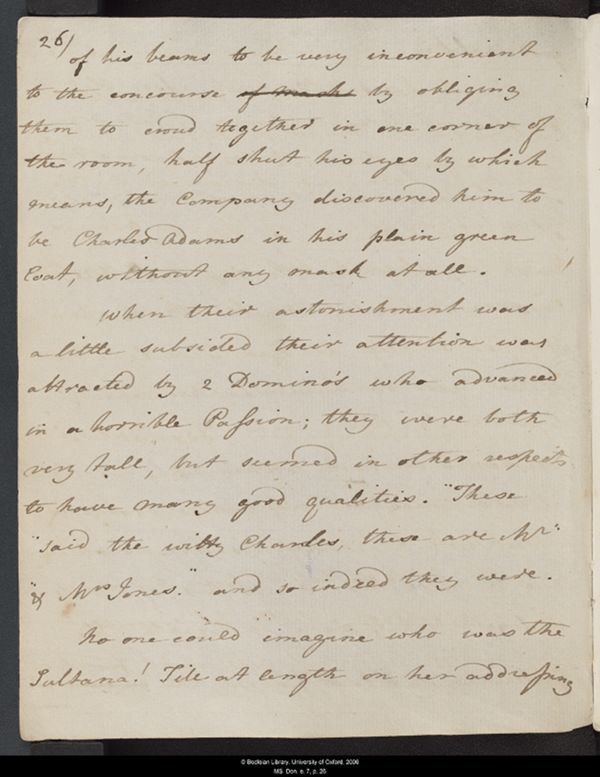 26/
of his beams to be very inconvenient
to the concourse of masks by obliging
them to croud together in one corner of
the room, half shut his eyes by which
means, the Company discovered him to
be Charles Adams in his plain green
Coat, without any mask at all.
When their astonishment was
a little subsided their attention was
attracted by 2 Domino's who advanced
in a horrible Passion; they were both
very tall, but seemed in other respects
to have many good qualities. "These
"said the witty Charles, these are Mr"
"& Mrs Jones." and so indeed they were.
No one could imagine who was the
Sultana! Till at length on her addressing
© Bodleian Library, University of Oxford, 2006
MS. Don. e. 7, p. 26